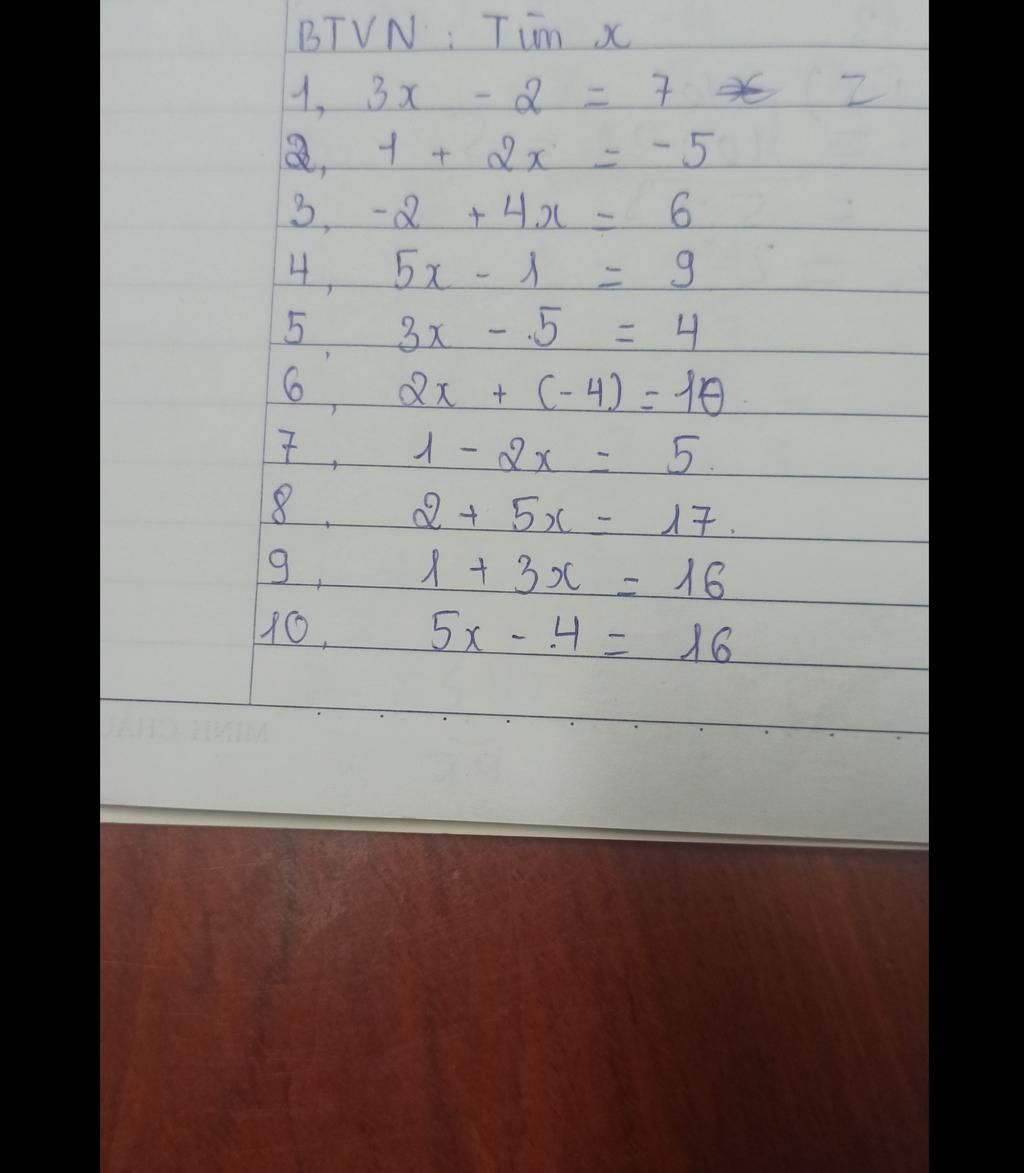 BTVN : Tìm x
1, 3x - 2 = 7
2, 1 + 2x = -5
3, -2 + 4x = 6
4, 5x - 1 = 9
5, 3x - 5 = 4
6, 2x + (-4) = 10
7, 1 - 2x = 5.
8, 2 + 5x = 17.
9, 1 + 3x = 16
10, 5x - 4 = 16